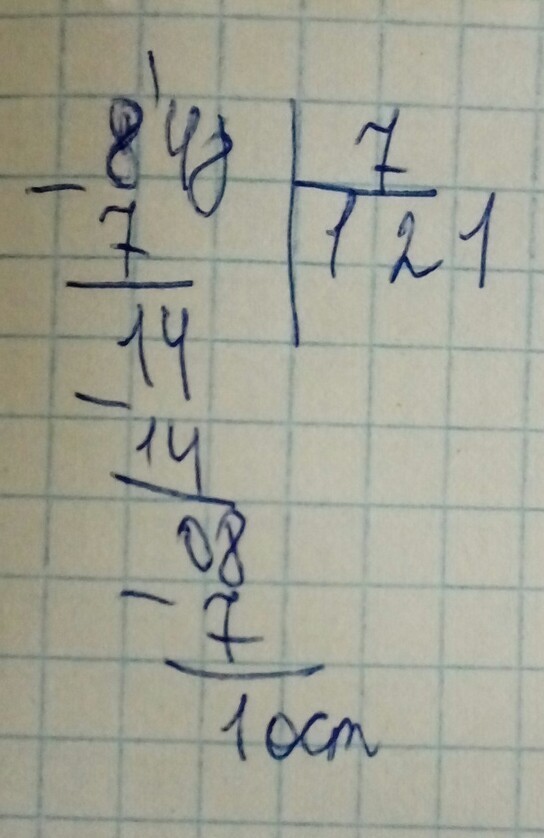 848 | 7
- 7 | 121
14
- 14
08
- 7
1 ост